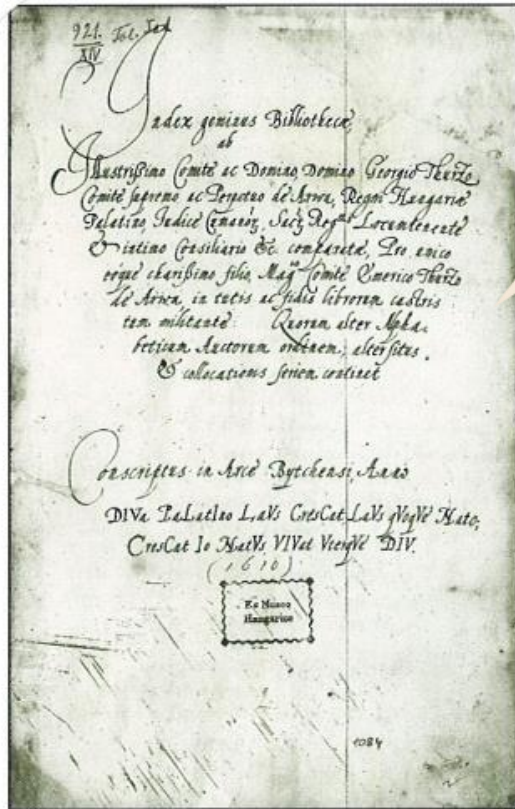 921.
XIV
Index geminus Bibliothecæ,
ab
Illustrissimo Comite ac Domino, Domino Georgio Thurzo
Comite supremo ac Perpetuo de Arwa, Regni Hungariæ
Palatino, Judice Locumtenente
& intimo Consiliario &c. comparatæ, Pro unico
eóque charissimo filio, Mag Comite Emerico Thurzo
de Arwa, in tutis ac fidis librorum castris
tum militante. Quorum alter Alpha-
beticum Auctorum ordinem, alter situs,
& collocationis seriem continet
Conscriptus in Arce Bytchensi, Anno
DIVa PaLatIno LaVs CresCat LaVs qVoqVe Nato;
CresCat Io NatVs, VIVat VterqVe DIV.
(1610)
Ex Museo
Hungarico
1084